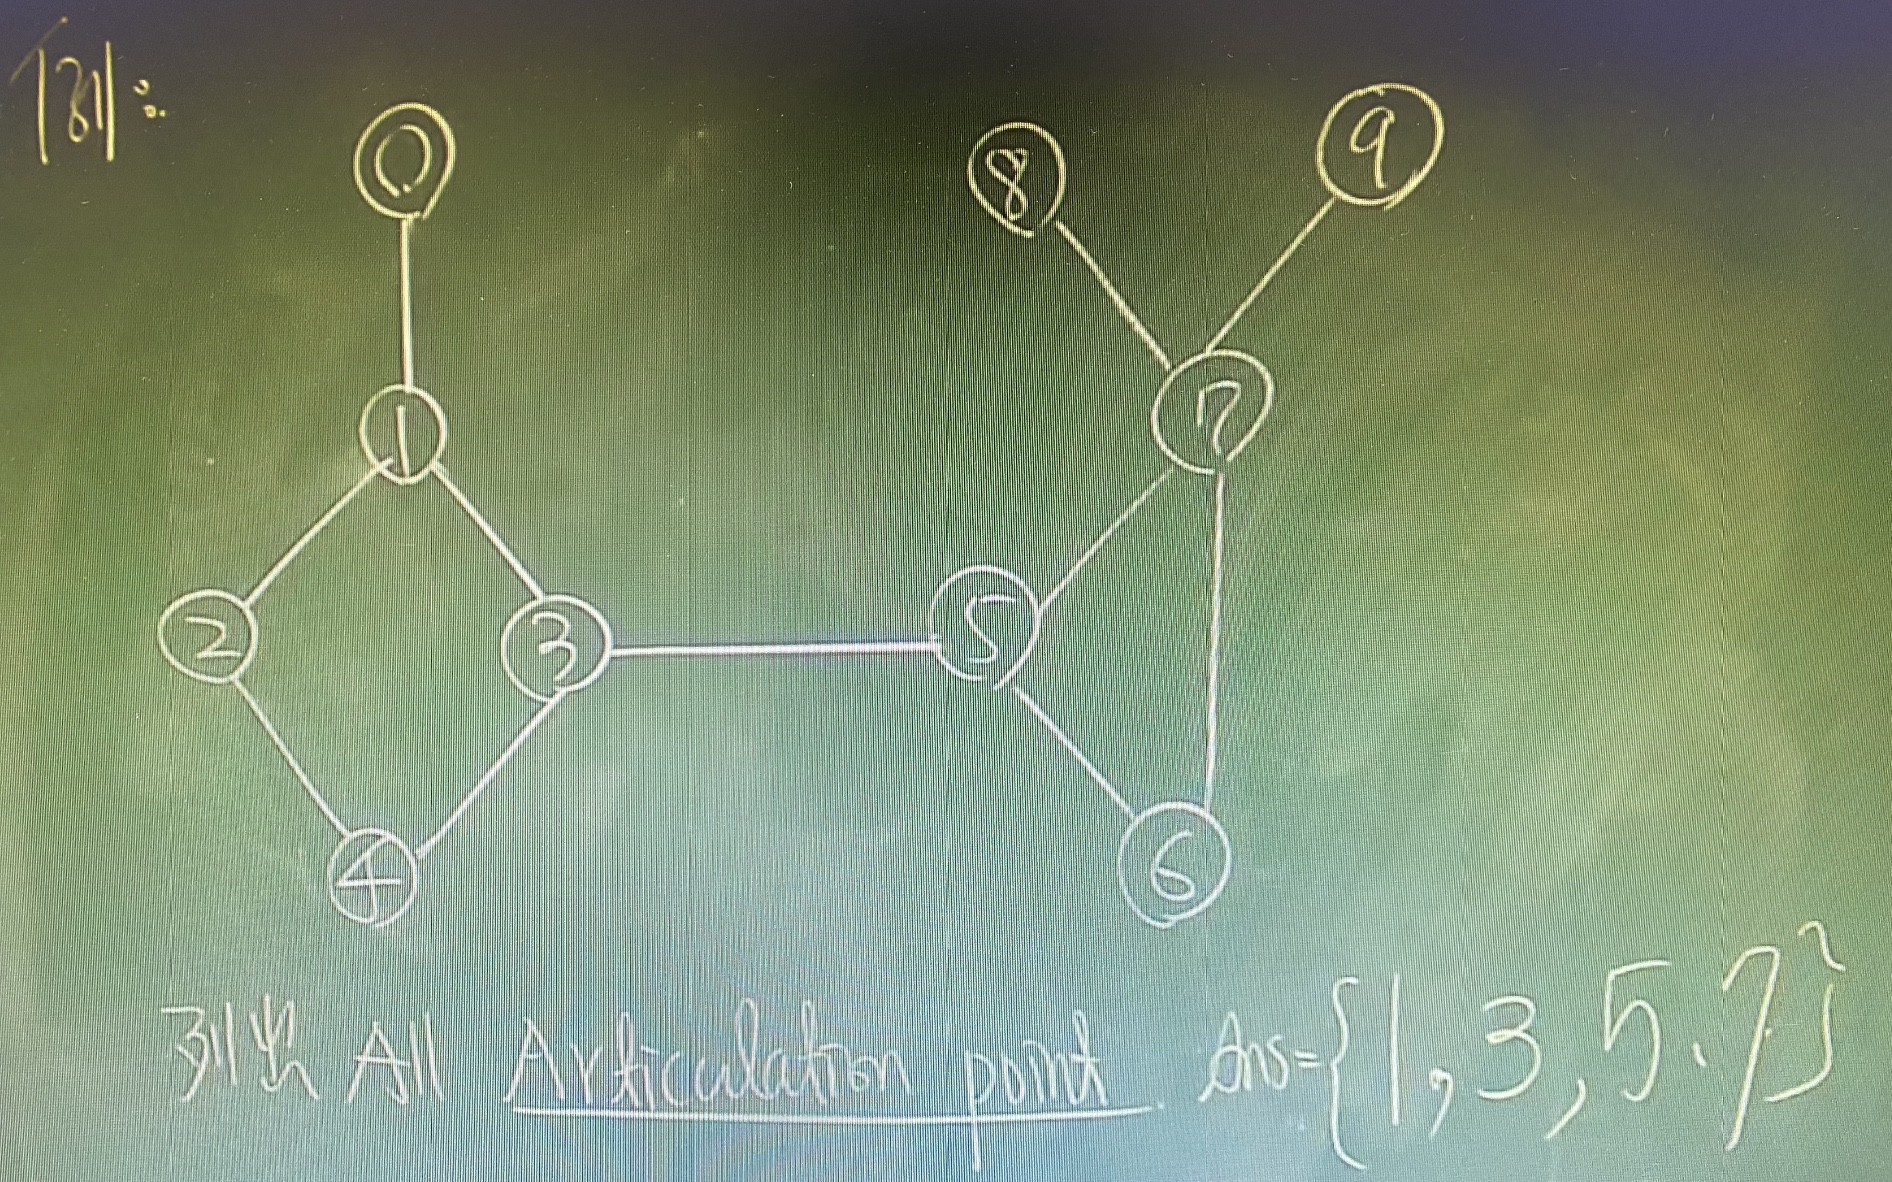 例:
0
8
9
1
7
2
3
5
4
6
列出 All Articulation point. Ans={1,3,5.7}